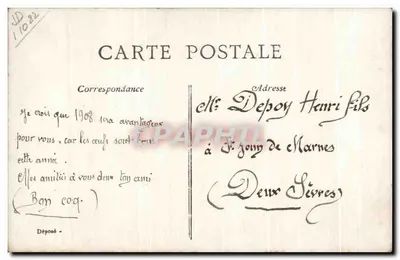 CARTE POSTALE
Correspondance
Adresse
Je crois que 1908 sera avantageux
pour vous, car les œufs sont bons
cette année.
amitiés à vous deux ton ami
(Bon coq.)
Mr Depoy Henri fils
à St jouin de Marnes
(Deux Sèvres)
Déposé -